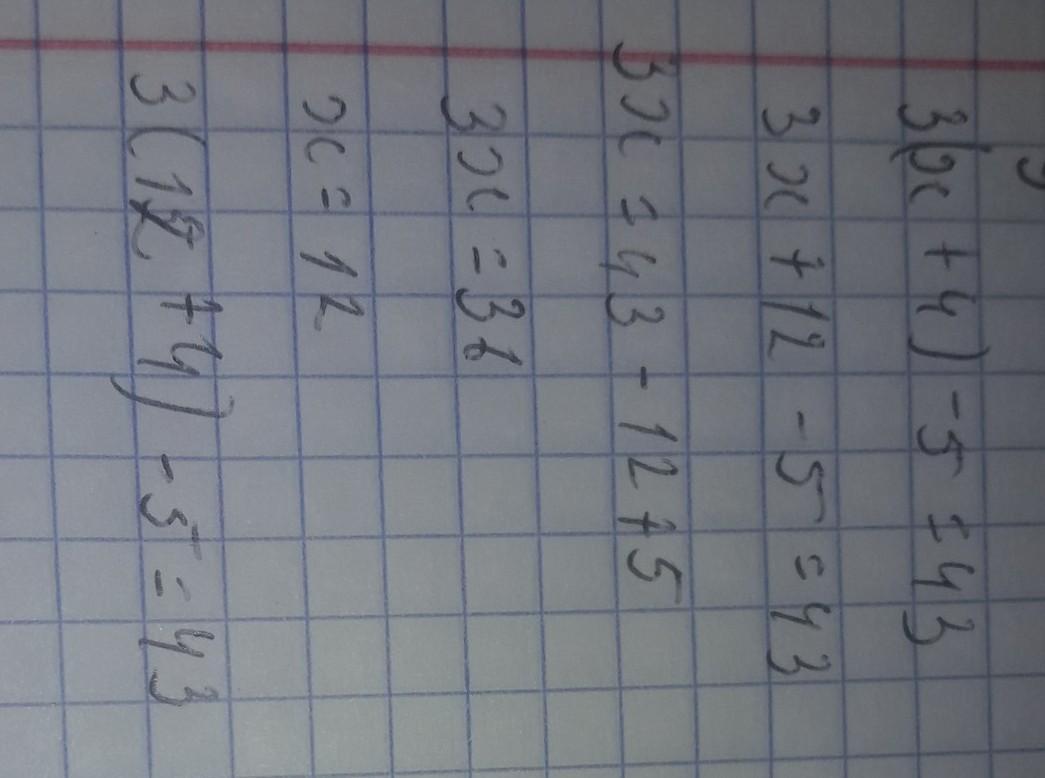 3(x + 4) - 5 = 43
3x + 12 - 5 = 43
3x = 43 - 12 + 5
3x = 36
x = 12
3(12 + 4) - 5 = 43